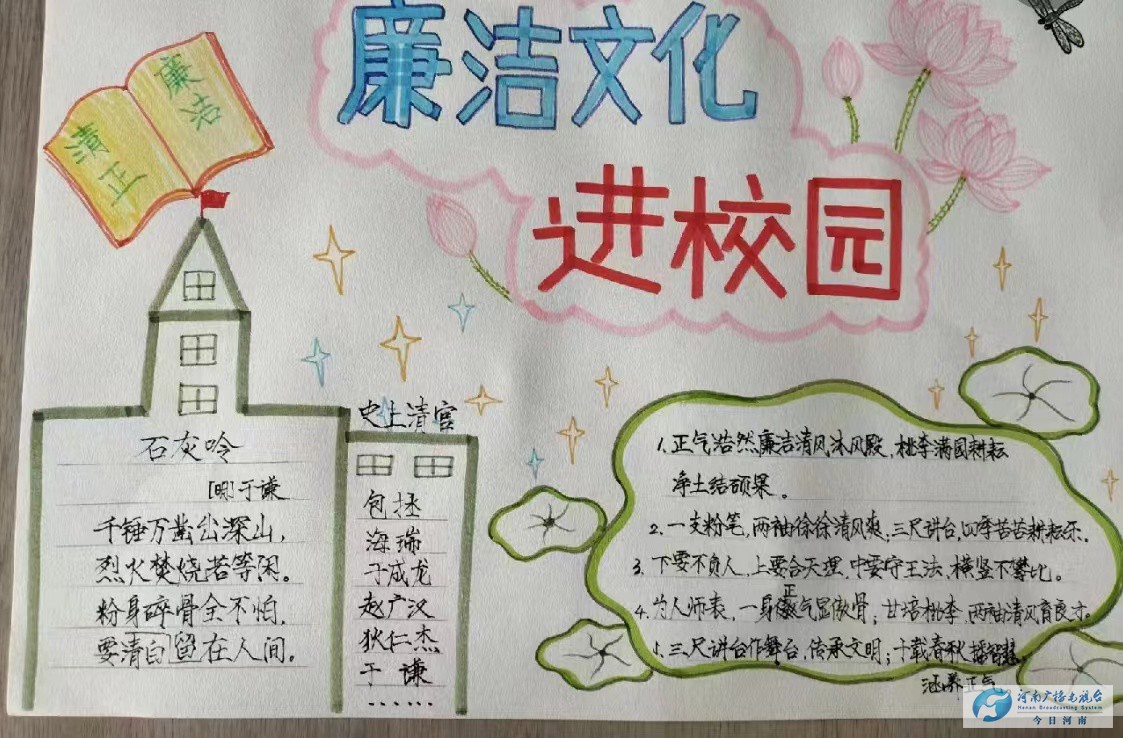 廉洁文化
进校园
廉洁
清正
石灰吟
[明]于谦
千锤万凿出深山，
烈火焚烧若等闲。
粉身碎骨全不怕，
要清白留在人间。
史上清官
包拯
海瑞
于成龙
赵广汉
狄仁杰
于谦
……
1.正气浩然廉洁清风沐风殿，桃李满园耕耘
净土结硕果。
2.一支粉笔，两袖徐徐清风爽；三尺讲台，四季苦苦耕耘乐。
3.下要不负人，上要合天理，中要守王法，横竖不攀比。
4.为人师表，一身正气显傲骨；甘培桃李，两袖清风育良才。
5.三尺讲台作舞台，传承文明；十载春秋播智慧
涵养正气
河南广播电视台
Henan Broadcasting System
今日河南